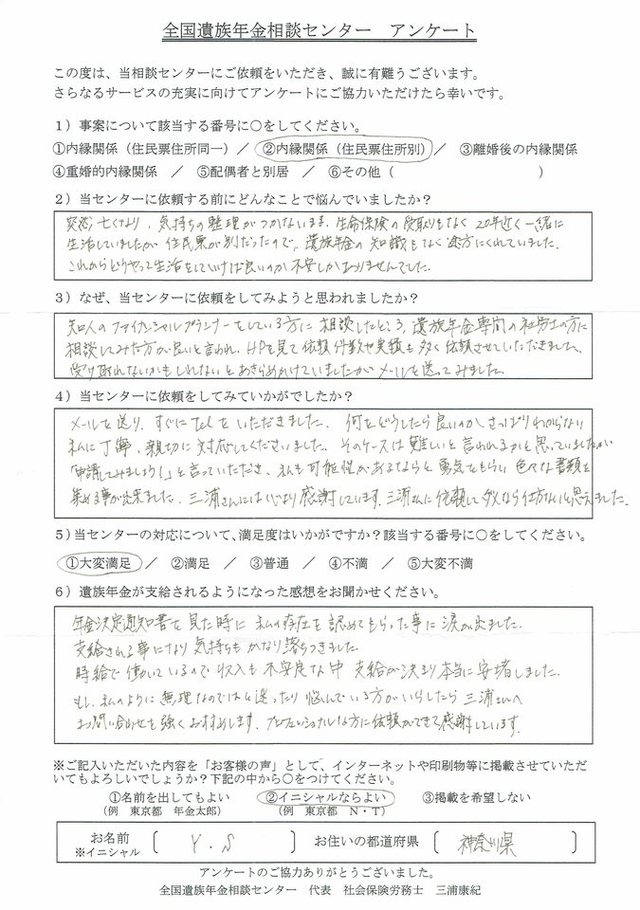 全国遺族年金相談センター　アンケート
この度は、当相談センターにご依頼をいただき、誠に有難うございます。
さらなるサービスの充実に向けてアンケートにご協力いただけたら幸いです。
１）事案について該当する番号に○をしてください。
①内縁関係（住民票住所同一）／　②内縁関係（住民票住所別）／　③離婚後の内縁関係
④重婚的内縁関係　／　⑤配偶者と別居　／　⑥その他（　　　　　　　　　　）
２）当センターに依頼する前にどんなことで悩んでいましたか？
突然亡くなり、気持ちの整理がつかないまま、生命保険の受取りもなく 20年近く一緒に
生活していましたが 住民票が別だったので、遺族年金の知識もなく途方にくれていました。
これからどうやって生活をしていけば良いのか 不安しかありませんでした。
３）なぜ、当センターに依頼をしてみようと思われましたか？
知人のファイナンシャルプランナーをしている方に相談したところ、遺族年金専門の社労士の方に
相談してみた方が良いと言われ、HPを見て依頼件数や実績も多く依頼させていただきました。
受け取れないかもしれないとあきらめかけていましたがメールを送ってみました。
４）当センターに依頼をしてみていかがでしたか？
メールを送り、すぐにTelをいただきました。何をどうしたら良いのか、さっぱりわからない
私に丁寧、親切に対応してくださいました。そのケースは難しいと言われるかと思っていましたが
「申請してみましょう！」と言っていただき、私も可能性があるならと勇気をもらい 色々な書類を
集める事が出来ました。三浦さんには心より感謝しています。三浦さんに依頼してダメなら仕方ないと思えました。
５）当センターの対応について、満足度はいかがですか？該当する番号に○をしてください。
①大変満足　／　②満足　／　③普通　／　④不満　／　⑤大変不満
６）遺族年金が支給されるようになった感想をお聞かせください。
年金決定通知書を見た時に 私の存在を認めてもらった事に涙が出ました。
支給される事になり気持ちもかなり落ちつきました。
時給で働いているので収入も不安定な中 支給が決まり本当に安堵しました。
もし、私のように無理なのではと迷ったり悩んでいる方がいらしたら三浦さんへ
お問い合わせを強くおすすめします。プロフェッショナルな方に依頼ができて感謝しています。
※ご記入いただいた内容を「お客様の声」として、インターネットや印刷物等に掲載させていただ
いてもよろしいでしょうか？下記の中から○をつけてください。
①名前を出してもよい　　②イニシャルならよい　　③掲載を希望しない
（例　東京都　年金太郎）　　（例　東京都　N・T）
お名前　〔　Y . S　〕　お住いの都道府県　〔　神奈川県　〕
※イニシャル
アンケートのご協力ありがとうございました。
全国遺族年金相談センター　代表　社会保険労務士　三浦康紀